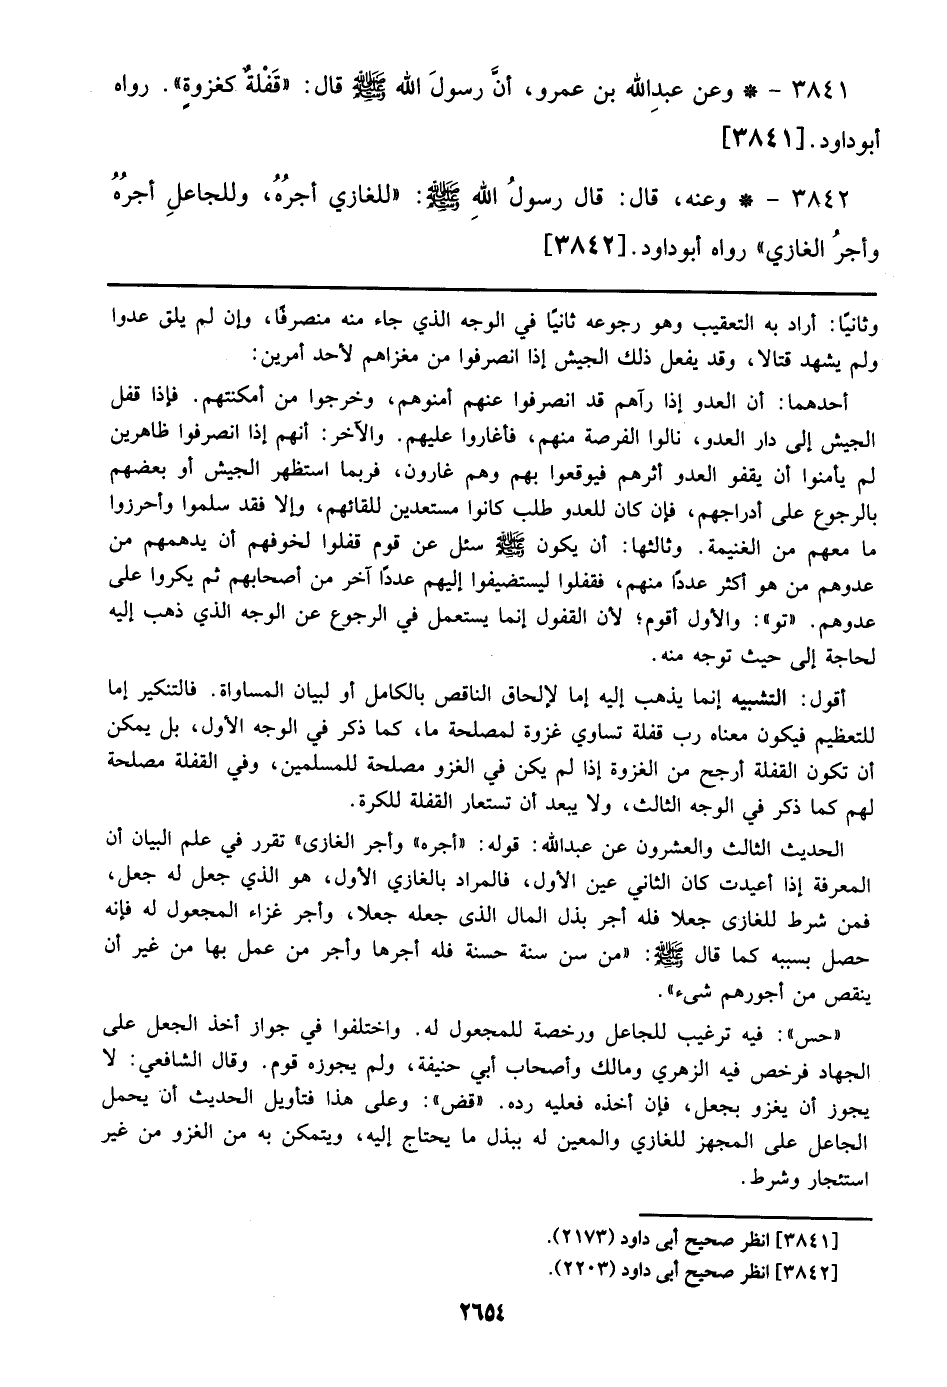 ٣٨٤١ – * وعن عبدِالله بن عمرو، أنَّ رسولَ الله ﷺ قال: «قَفْلةٌ كغزوةٍ». رواه
أبوداود. [٣٨٤١]
٣٨٤٢ – * وعنه، قال: قال رسولُ اللهِ ﷺ: «للغازي أجرُهُ، وللجاعلِ أجرُهُ
وأجرُ الغازي» رواه أبوداود. [٣٨٤٢]
وثانيًا: أراد به التعقيب وهو رجوعه ثانيًا في الوجه الذي جاء منه منصرفًا، وإن لم يلق عدوا
ولم يشهد قتالا، وقد يفعل ذلك الجيش إذا انصرفوا من مغزاهم لأحد أمرين:
أحدهما: أن العدو إذا رآهم قد انصرفوا عنهم أمنوهم، وخرجوا من أمكنتهم. فإذا قفل
الجيش إلى دار العدو، نالوا الفرصة منهم، فأغاروا عليهم. والآخر: أنهم إذا انصرفوا ظاهرين
لم يأمنوا أن يقفو العدو أثرهم فيوقعوا بهم وهم غارون، فربما استظهر الجيش أو بعضهم
بالرجوع على أدراجهم، فإن كان للعدو طلب كانوا مستعدين للقائهم، وإلا فقد سلموا وأحرزوا
ما معهم من الغنيمة. وثالثها: أن يكون ﷺ سئل عن قوم قفلوا لخوفهم أن يدهمهم من
عدوهم من هو أكثر عددًا منهم، فقفلوا ليستضيفوا إليهم عددًا آخر من أصحابهم ثم يكروا على
عدوهم. «تو»: والأول أقوم؛ لأن القفول إنما يستعمل في الرجوع عن الوجه الذي ذهب إليه
لحاجة إلى حيث توجه منه.
أقول: التشبيه إنما يذهب إليه إما لإلحاق الناقص بالكامل أو لبيان المساواة. فالتنكير إما
للتعظيم فيكون معناه رب قفلة تساوي غزوة لمصلحة ما، كما ذكر في الوجه الأول، بل يمكن
أن تكون القفلة أرجح من الغزوة إذا لم يكن في الغزو مصلحة للمسلمين، وفي القفلة مصلحة
لهم كما ذكر في الوجه الثالث، ولا يبعد أن تستعار القفلة للكرة.
الحديث الثالث والعشرون عن عبدالله: قوله: «أجره» وأجر الغازى» تقرر في علم البيان أن
المعرفة إذا أعيدت كان الثاني عين الأول، فالمراد بالغازي الأول، هو الذي جعل له جعل،
فمن شرط للغازى جعلا فله أجر بذل المال الذى جعله جعلا، وأجر غزاء المجعول له فإنه
حصل بسببه كما قال ﷺ: «من سن سنة حسنة فله أجرها وأجر من عمل بها من غير أن
ينقص من أجورهم شىء».
«حس»: فيه ترغيب للجاعل ورخصة للمجعول له. واختلفوا في جواز أخذ الجعل على
الجهاد فرخص فيه الزهري ومالك وأصحاب أبي حنيفة، ولم يجوزه قوم. وقال الشافعي: لا
يجوز أن يغزو بجعل، فإن أخذه فعليه رده. «قض»: وعلى هذا فتأويل الحديث أن يحمل
الجاعل على المجهز للغازي والمعين له ببذل ما يحتاج إليه، ويتمكن به من الغزو من غير
استئجار وشرط.
[٣٨٤١] انظر صحيح أبى داود (٢١٧٣).
[٣٨٤٢] انظر صحيح أبى داود (٢٢٠٣).
٢٦٥٤